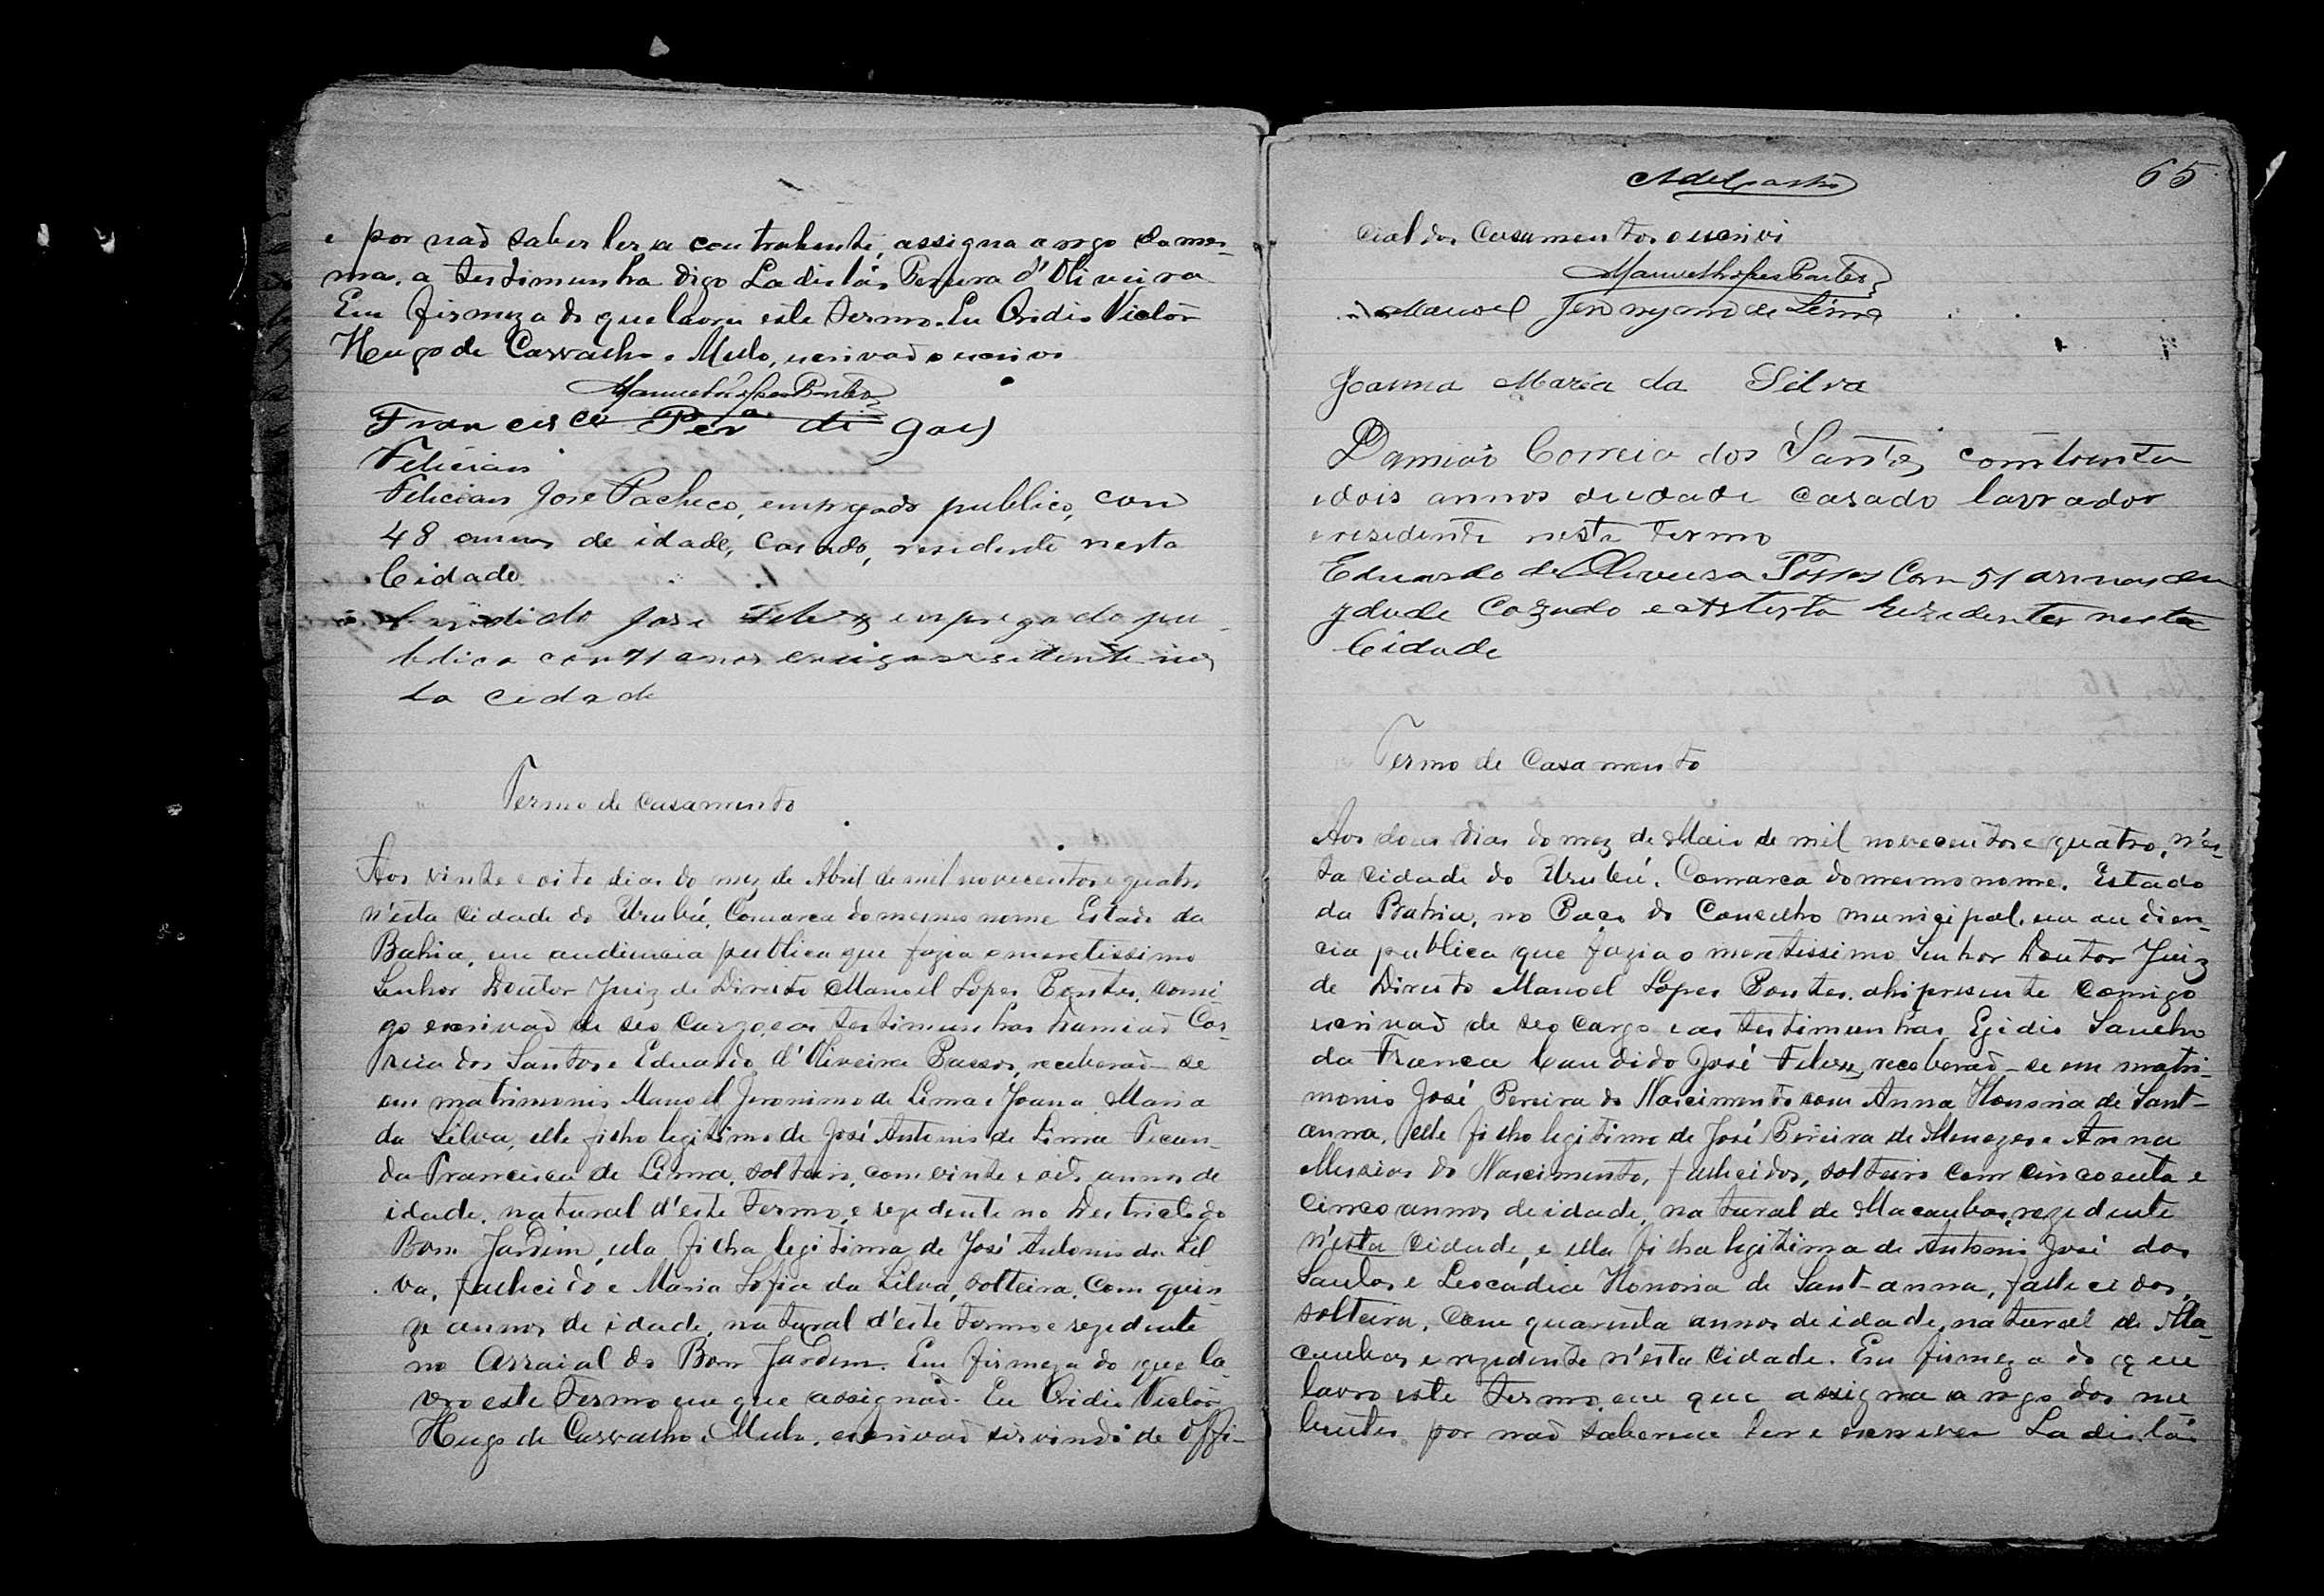 e por naõ saber ler a contrahente, assigna a rogo da mes-
ma, a testimunha digo Ladisláo Pereira d'Oliveira
Em firmeza do que lavrei este termo. Eu Ovidio Victor
Hugo de Carvalho e Mello, escrivaõ o escrivi
Manuel Lopes Pontes
Francisco Perª de
Felician
Felician José Pacheco, empregado publico, com
48 annos de idade, casado, residente nesta
Cidade
Candido José empregado pu-
blico com 71 anos residente nes
ta cidade
Termo de casamento
Aos vinte e oito dias do mez de Abril de mil novecentos e quatro
n'esta Cidade do Urubú, Comarca do mesmo nome Estado da
Bahia, em audiencia publica que fazia o meretissimo
Senhor Doutor Juiz de Direito Manoel Lopes Pontes, comi-
go escrivaõ de seo cargo, e as testimunhas Damiaõ Cor-
reia dos Santos e Eduardo d'Oliveira Passos, receberaõ-se
em matrimonio Manoel Jeronimo de Lima e Joana Maria
da Silva, elle filho legitimo de José Antonio de Lima e
Francisca de Lima, solteiro, com vinte e oito annos de
idade, natural d'este termo, e rezidente no Destricto do
Bom Jardim, ella filha legitima de José Antonio da Sil-
va, fallecido e Maria Sofia da Silva, solteira, com quin-
ze annos de idade, natural d'este termo e rezidente
no Arraial do Bom Jardim. Em firmeza do que la-
vro este termo em que assignaõ. Eu Ovidio Victor
Hugo de Carvalho e Mello, escrivaõ servindo de Offi-
65
cial dos Casamentos o escrivi
Manuel Lopes Pontes
Manoel Jeronymo de Lima
Joanna Maria da Silva
Damiaõ Correia dos Santos com trinta
e dois annos de idade casado lavrador
e residente neste termo
Eduardo de Oliveira Passos Com 51 annos de
ydade Cazado Rezidentes nesta
Cidade
Termo de Casamento
Aos dous dias do mez de Maio de mil novecentos e quatro, n'es-
ta Cidade do Urubú, Comarca do mesmo nome, Estado
da Bahia, no Paço do Conselho municipal, em audien-
cia publica que fazia o meretissimo Senhor Doutor Juiz
de Direito Manoel Lopes Pontes, ahi presente comigo
escrivaõ de seo cargo e as testimunhas Egidio Sancho
da Franca Candido José receberaõ-se em matri-
monio José Pereira do Nascimento com Anna Honoria de Sant-
anna, elle filho legitimo de José Pereira de Menezes e Anna
Messias do Nascimento, fallecidos, solteiro com cincoenta e
cinco annos de idade, natural de Macaubas, rezidente
n'esta Cidade, e ella filha legitima de Antonio José dos
Santos e Leocádia Honoria de Sant-anna, fallecidos,
solteira, com quarenta annos de idade, natural de Ma-
caubas e rezidente n'esta Cidade. Em firmeza do que
lavro este termo, em que assigna a rogo dos nu-
bentes por naõ saberem ler e escrever Ladisláo